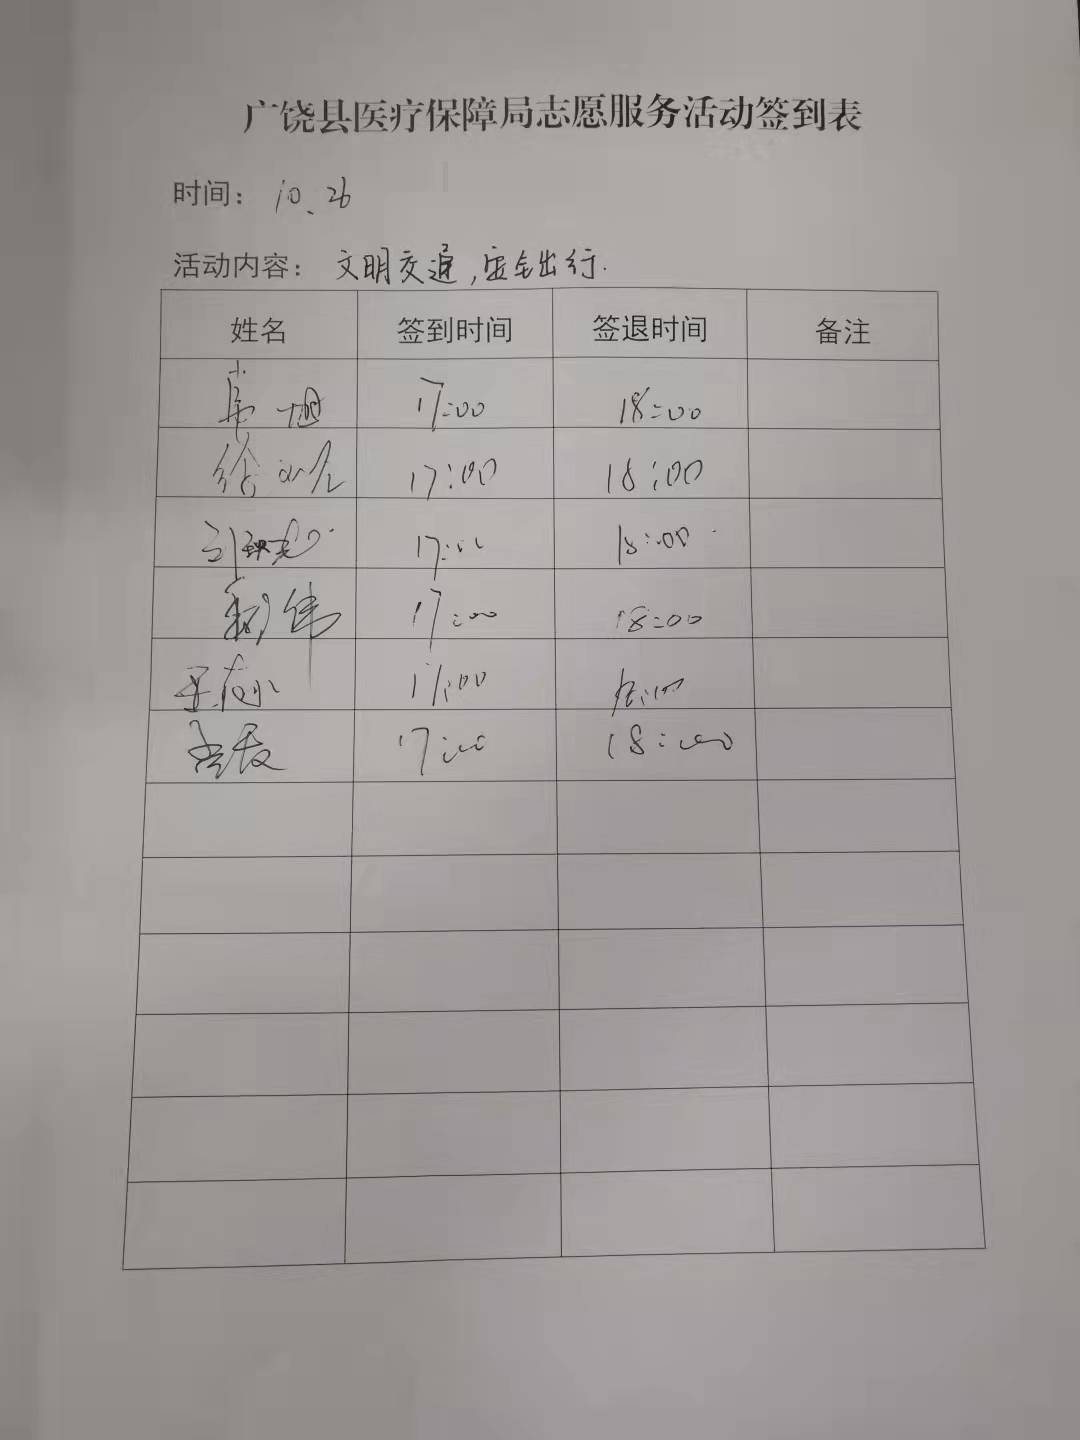 广饶县医疗保障局志愿服务活动签到表
时间： 10.26
活动内容： 文明交通,安全出行.
姓名 签到时间 签退时间 备注
17:00 18:00
17:00 18:00
17:00 18:00
伟 17:00 18:00
17:00
17:00 18:00